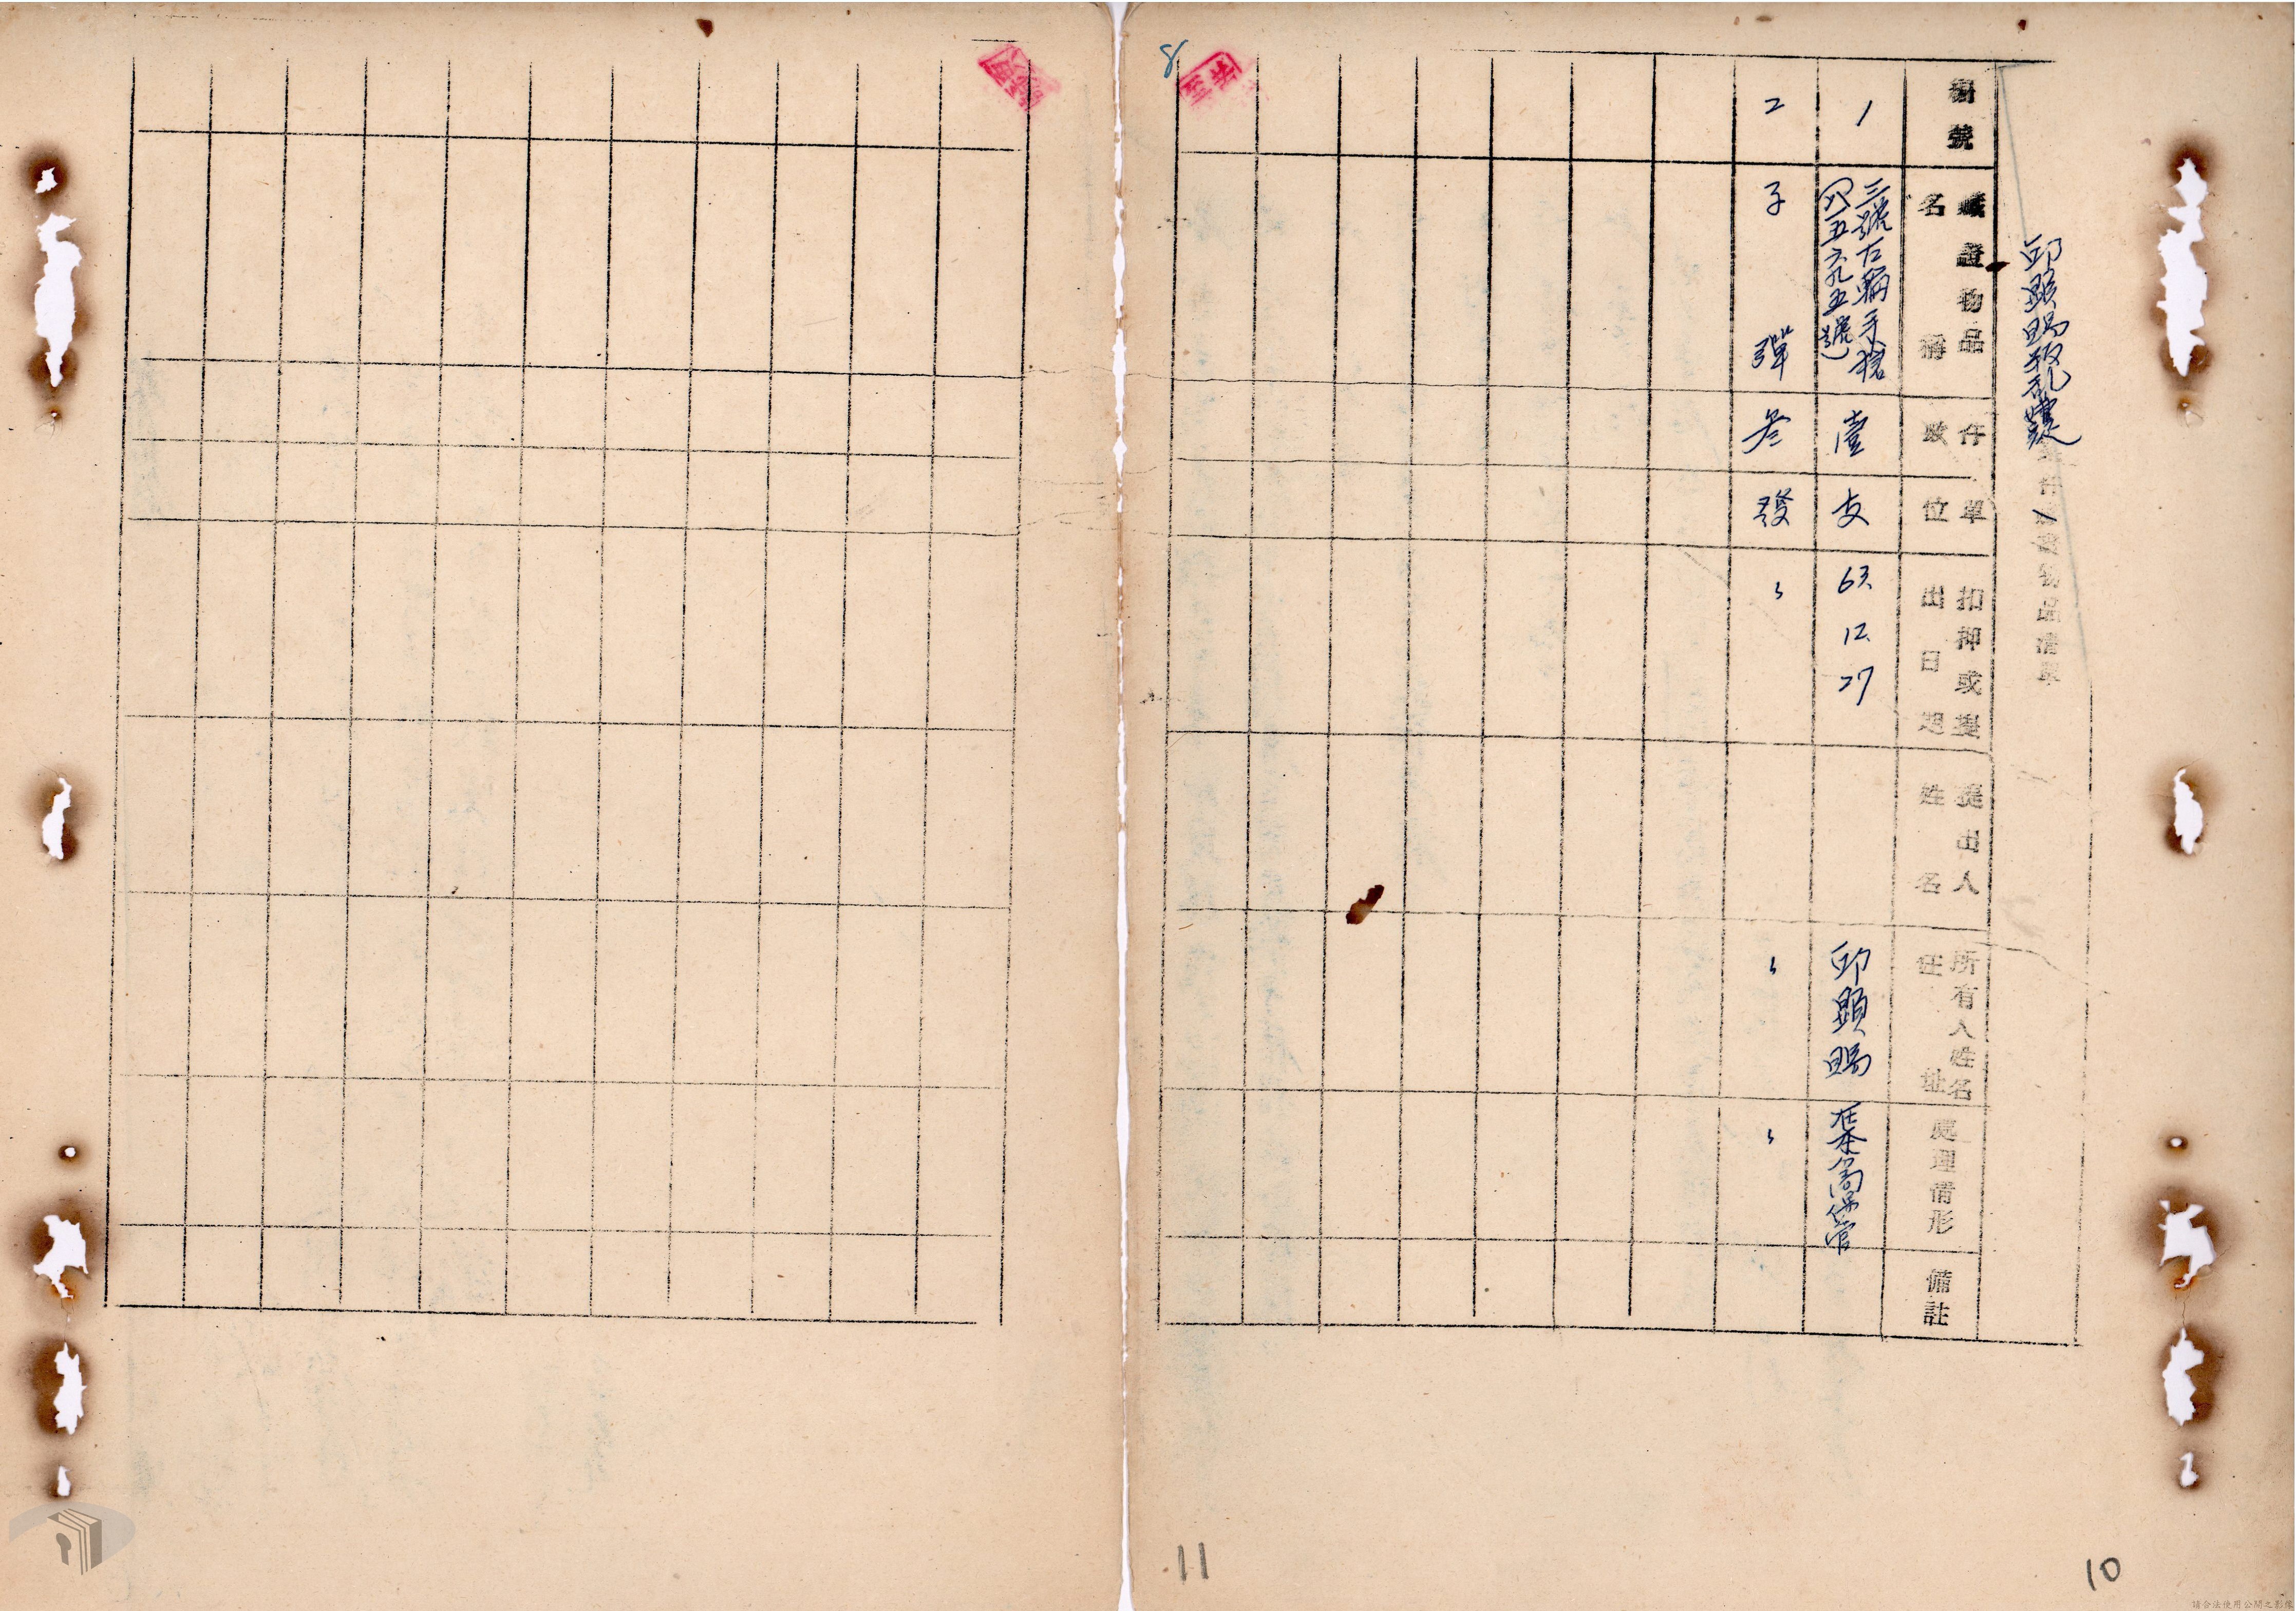 邱顯賜叛乱嫌疑案件贓證物品清單
編號
贓證物品
名稱
件
數
單
位
扣押或提
出日期
提出人
姓名
所有人姓名
住址
處理情形
備註
1
三號左輪手槍
(四五六九五號)
壹
支
63.
12.
27
邱顯賜
在本局保管
2
子彈
叁
發
〃
〃
〃
8
11
10
請合法使用公開之影像